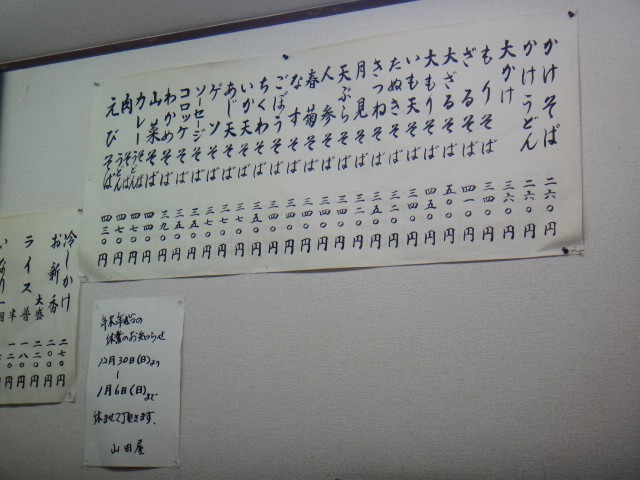 かけそば 二六〇円
かけうどん 二六〇円
大かけ 三六〇円
もりそば 三四〇円
ざるそば 四一〇円
大ざるそば 五〇〇円
大もりそば 四五〇円
いも天そば 三四〇円
たぬきそば 三二〇円
きつねそば 三五〇円
月見そば 三三〇円
天ぷらそば 三四〇円
人参そば 三四〇円
春菊そば 三四〇円
なすそば 三四〇円
ごぼうそば 三四〇円
ちくわそば 三五〇円
いか天そば 三七〇円
あじ天そば 三七〇円
ゲソそば 三七〇円
ソーセージそば
コロッケそば
わかめそば
山菜そば 四四〇円
カレーそばうどん
肉そばうどん 四七〇円
えびそば 四三〇円
冷しかけ 二七〇円
お新香 二〇〇円
ライス 大盛 二二〇円
普 一八〇円
半 一二〇円
いなり一個
年末年始の
休業のお知らせ
12月30日(日)より
〜
1月6日(日)まで
休ませて頂きます。
山田屋